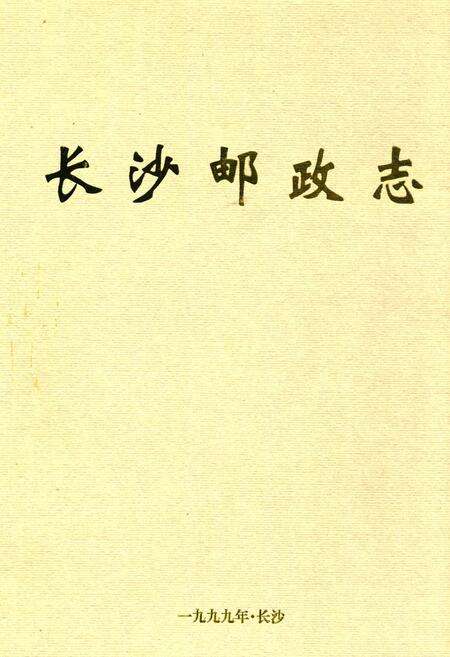 长沙邮政志
一九九九年·长沙